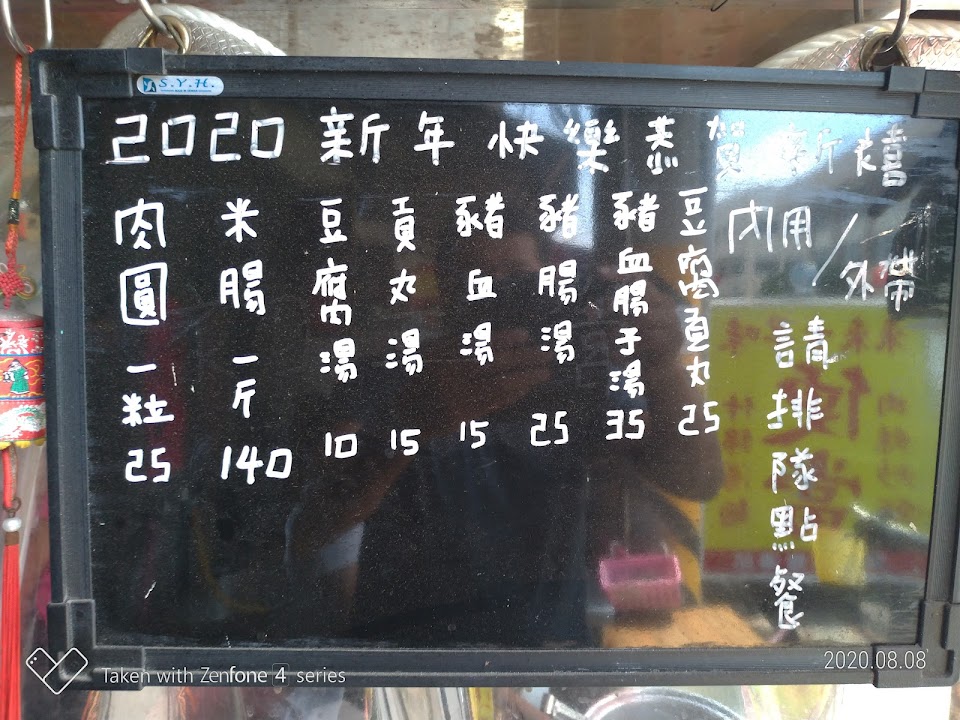 S.Y.H.
2020 新年快樂恭賀新禧
肉圓一粒 25
米腸一斤 140
豆腐湯 10
貢丸湯 15
豬血湯 15
豬腸湯 25
豬血腸子湯 35
豆腐貢丸 25
內用／外帶
請排隊點餐
Taken with Zenfone 4 series
2020.08.08